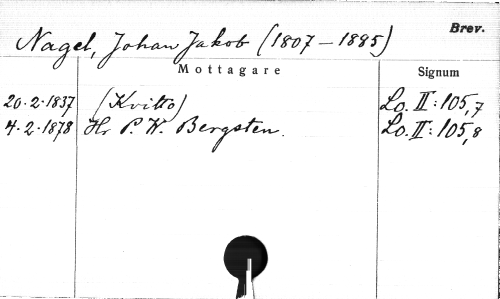 Brev.
Nagel, Johan Jakob (1807-1885)
Mottagare Signum
20.2.1837 (Kvitto) Lo. II:105,7
4.2.1878 Hr P. W. Bergsten. Lo. II:105,8